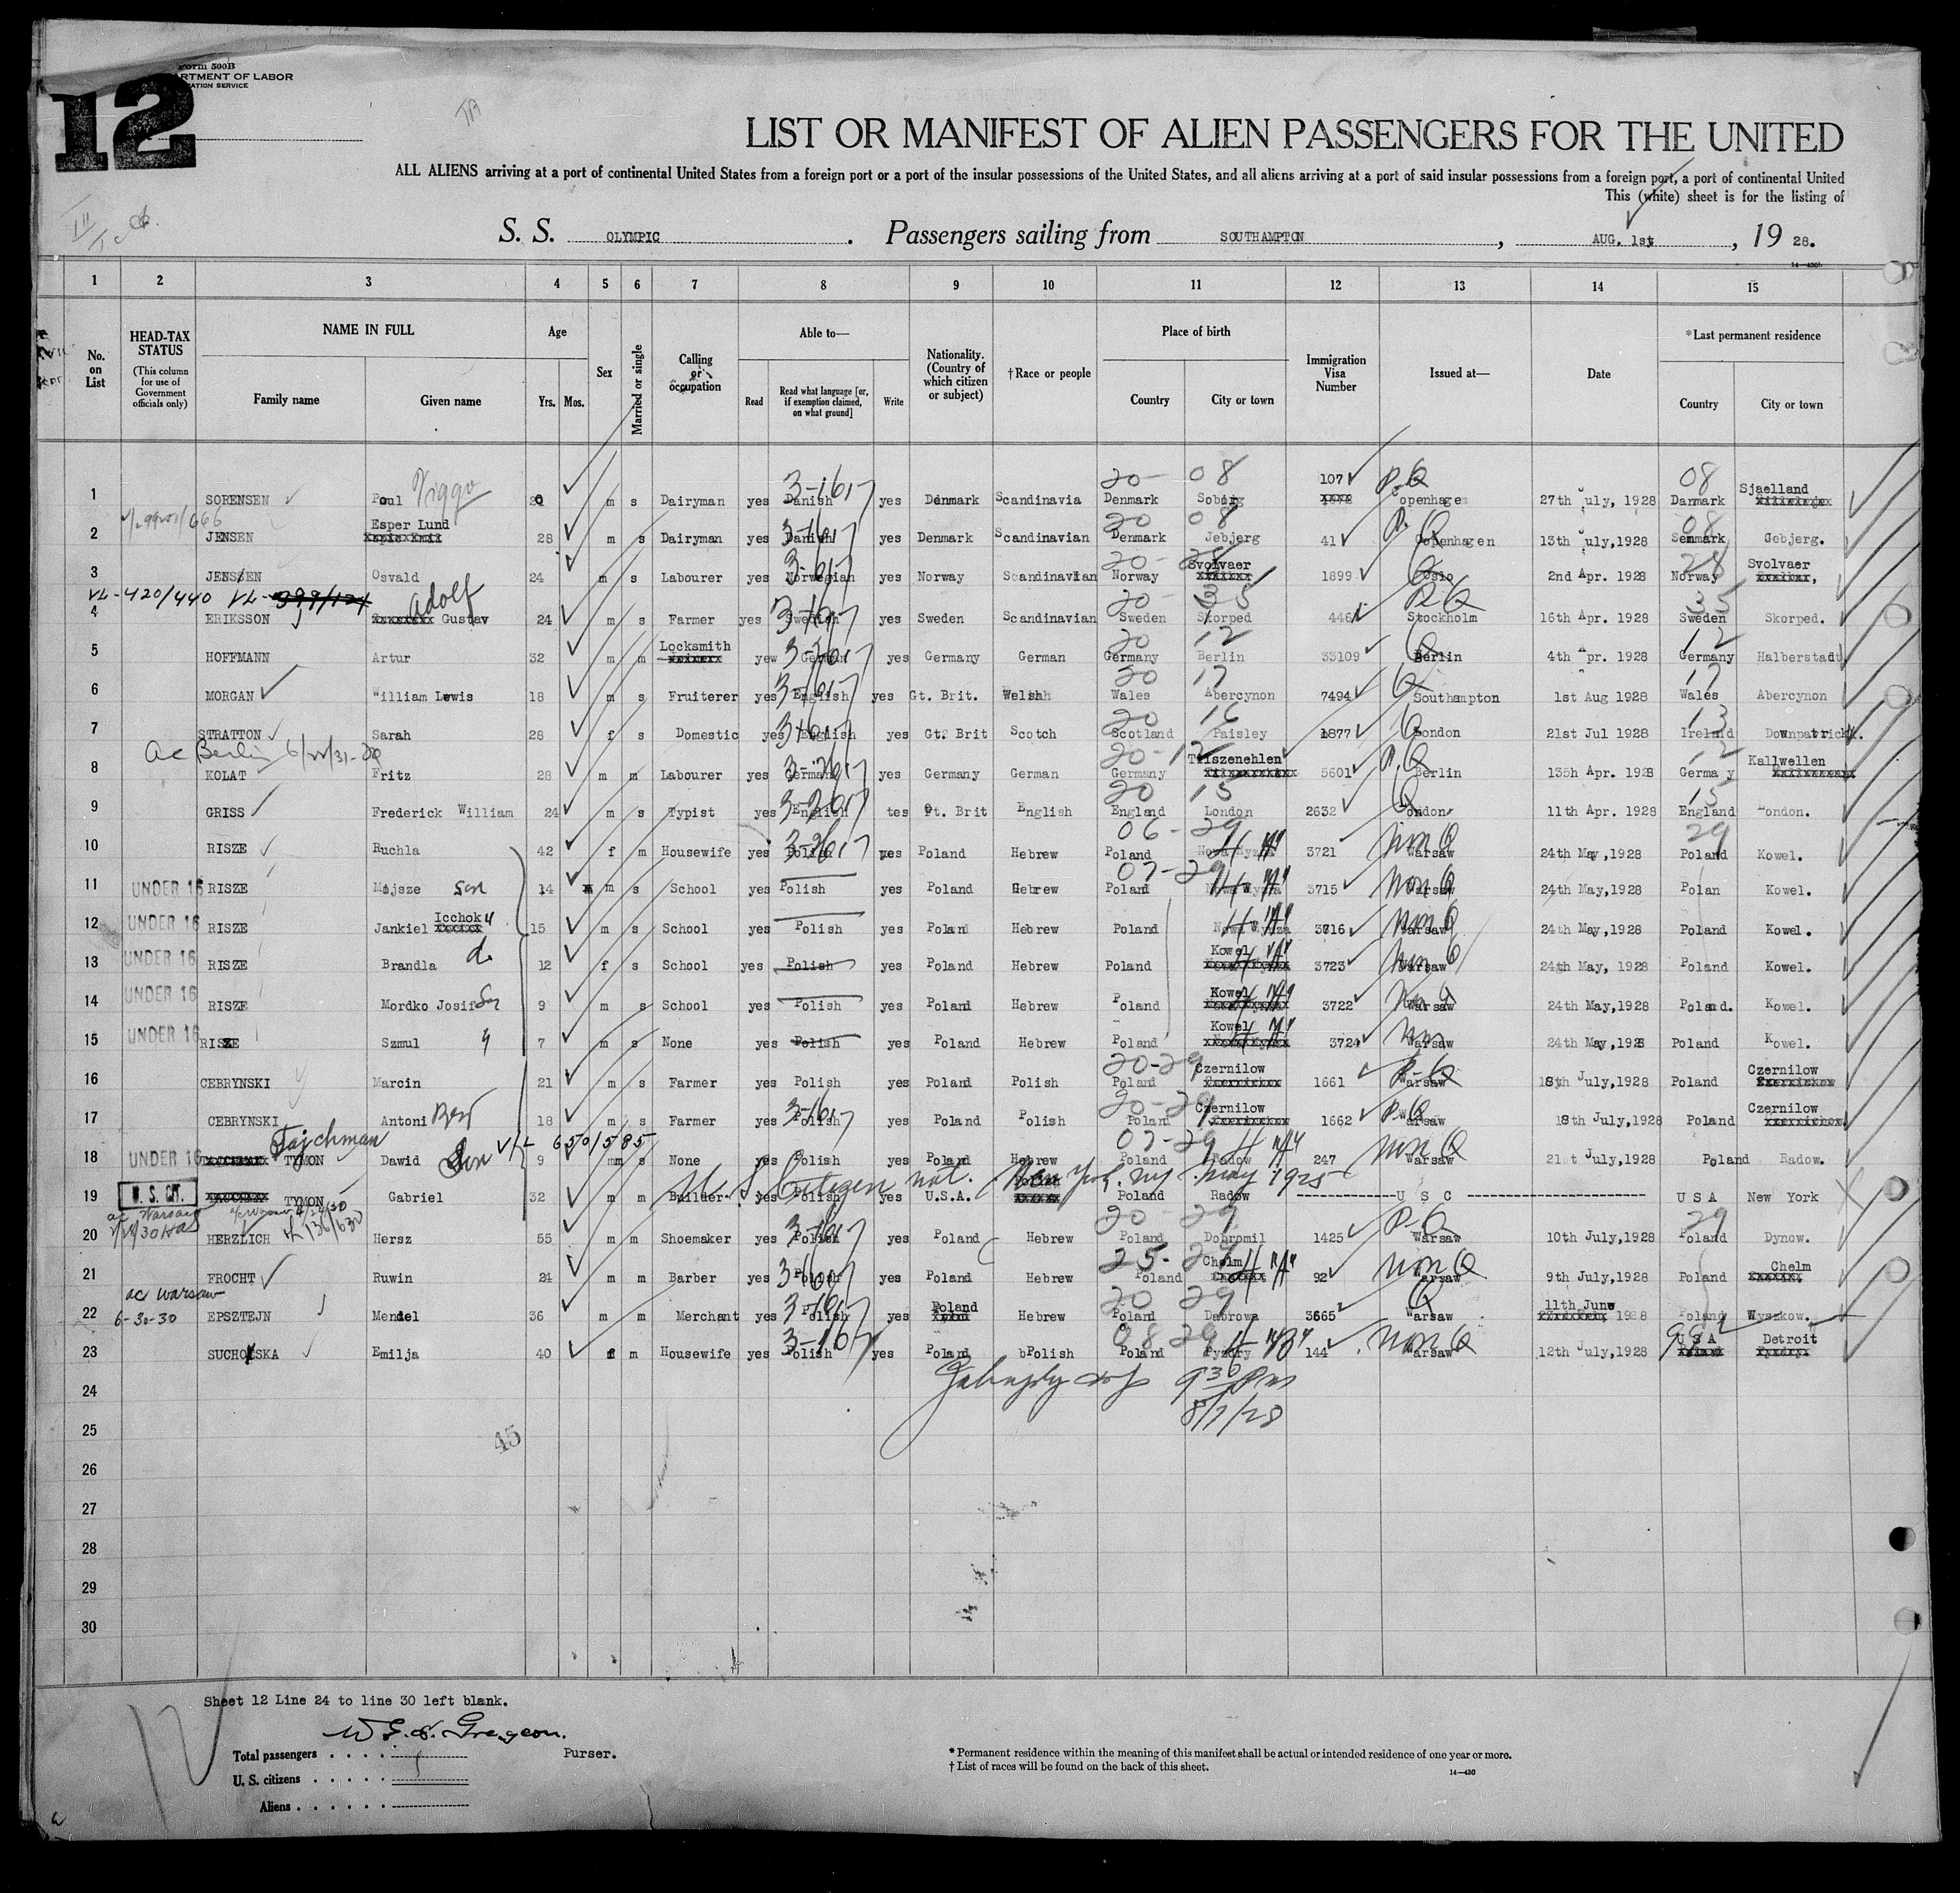 Form 500B
ARTMENT OF LABOR
ATION SERVICE
12
LIST OR MANIFEST OF ALIEN PASSENGERS FOR THE UNITED
ALL ALIENS arriving at a port of continental United States from a foreign port or a port of the insular possessions of the United States, and all aliens arriving at a port of said insular possessions from a foreign port, a port of continental United
This (white) sheet is for the listing of
S. S. OLYMPIC. Passengers sailing from SOUTHAMPTON, AUG. 1st, 19 28.
14—430b
1 2 3 4 5 6 7 8 9 10 11 12 13 14 15
No. on List
HEAD-TAX STATUS (This column for use of Government officials only)
NAME IN FULL Family name Given name
Age Yrs. Mos.
Sex
Married or single
Calling or occupation
Able to— Read Read what language [or, if exemption claimed, on what ground] Write
Nationality. (Country of which citizen or subject)
†Race or people
Place of birth Country City or town
Immigration Visa Number
Issued at—
Date
*Last permanent residence Country City or town
1 SORENSEN Poul Viggo m s Dairyman yes Danish 3-161-7 yes Denmark Scandinavia Denmark 20- 08 107 P.Q Copenhagen 27th July, 1928 Danmark 08 Sjaelland
2 JENSEN Esper Lund 28 m s Dairyman yes Danish yes Denmark Scandinavian Denmark 20 08 Jebjerg 41 Copenhagen 13th July,1928 Denmark 08 Gebjerg.
3 JENSEN Osvald 24 m s Labourer yes Norwegian yes Norway Scandinavian Norway 20- 28 Svolvaer 1899 Q Oslo 2nd Apr. 1928 Norway 28 Svolvaer
VL-420/440
4 ERIKSSON Adolf Gustav 24 m s Farmer yes Swedish yes Sweden Scandinavian Sweden 20- 35 Skorped 446 Stockholm 16th Apr. 1928 Sweden 35 Skorped.
5 HOFFMANN Artur 32 m m Locksmith yew German yes Germany German Germany 20 12 Berlin 33109 Q Berlin 4th Apr. 1928 Germany 12 Halberstadt
6 MORGAN William Lewis 18 m s Fruiterer yes English yes Gt. Brit. Welsh Wales 20 17 Abercynon 7494 Q Southampton 1st Aug 1928 Wales 17 Abercynon
7 STRATTON Sarah 28 f s Domestic yes English yes Gt. Brit Scotch Scotland 20 16 Paisley 1877 Q London 21st Jul 1928 Ireland 13 Downpatrick.
ac Berlin
8 KOLAT Fritz 28 m m Labourer yes German yes Germany German Germany 20-12 5601 P.Q Berlin 13th Apr. 1928 Germa y 12 Kallwellen
9 GRISS Frederick William 24 m s Typist yes English tes Gt. Brit English England 20 15 London 2632 Q London 11th Apr. 1928 England 15 London.
10 RISZE Ruchla 42 f m Housewife yes Polish yes Poland Hebrew Poland 06-29 3721 non Q Warsaw 24th May,1928 Poland 29 Kowel.
11 UNDER 16 RISZE Mojsze son 14 m s School yes Polish yes Poland Hebrew Poland 07-29 3715 non Q Warsaw 24th May,1928 Polan Kowel.
12 UNDER 16 RISZE Jankiel Icchok 15 m s School yes Polish yes Poland Hebrew Poland 3716 non Q Warsaw 24th May,1928 Poland Kowel.
13 UNDER 16 RISZE Brandla 12 f s School yes Polish yes Poland Hebrew Poland Kowel 3723 non Q Warsaw 24th May, 1928 Poland Kowel.
14 UNDER 16 RISZE Mordko Josif 9 m s School yes Polish yes Poland Hebrew Poland Kowel 3722 non Q Warsaw 24th May,1928 Poland. Kowel.
15 UNDER 16 RISZE Szmul 7 m s None yes Polish yes Poland Hebrew Poland Kowel 3724 non Warsaw 24th May,1928 Poland Kowel.
16 CEBRYNSKI Marcin 21 m s Farmer yes Polish yes Poland Polish Poland 20-29 Czernilow 1661 P-Q Warsaw 18th July,1928 Poland Czernilow
17 CEBRYNSKI Antoni 18 m s Farmer yes Polish yes Poland Polish Poland 20-29 Czernilow 1662 P-Q Warsaw 18th July,1928 Poland Czernilow
Tajchman
18 UNDER 16 TYMON Dawid Son 650/585 9 m s None yes Polish yes Poland Hebrew Poland 07-29 Radow 247 non Q Warsaw 21st July,1928 Poland Radow.
U. S. Citizen nat. New York, NY. May 1925
19 U. S. CIT. TYMON Gabriel 32 m m Builder yes Polish yes U.S.A. Poland Radow U S C U S A New York
ac Warsaw
20 HERZLICH Hersz 55 m m Shoemaker yes Polish yes Poland Hebrew Poland 20 29 Dobromil 1425 P-Q Warsaw 10th July,1928 Poland 29 Dynow.
21 FROCHT Ruwin 24 m m Barber yes Polish yes Poland Hebrew Poland 25-29 Chelm 92 non Q Warsaw 9th July,1928 Poland Chelm
ac Warsaw
22 6-30-30 EPSZTEJN Mendel 36 m m Merchant yes Polish yes Poland Hebrew Poland 20 29 Dabrowa 3665 Q Warsaw 11th June 1928 Poland Wyszkow.
23 SUCHOLSKA Emilja 40 f m Housewife yes Polish yes Poland bPolish Poland 08-29 Pyzdry 144 non Q Warsaw 12th July,1928 99 U S A Detroit
24 9 30 Pm
8/7/28
25 45
26
27
28
29
30
Sheet 12 Line 24 to line 30 left blank.
Total passengers . . . . Purser.
U. S. citizens . . . . .
Aliens . . . . . .
* Permanent residence within the meaning of this manifest shall be actual or intended residence of one year or more.
† List of races will be found on the back of this sheet.
14—430